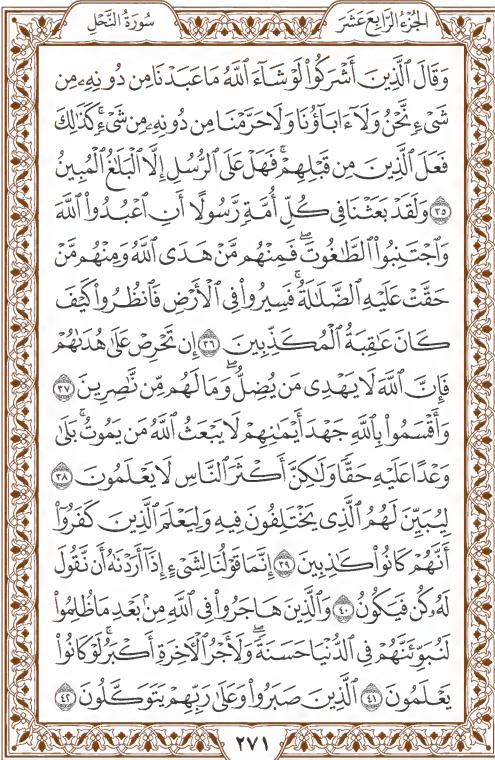 سُورَةُ النَّحْلِ
الجُزْءُ الرَّابِعَ عَشَرَ
وَقَالَ ٱلَّذِينَ أَشْرَكُوا۟ لَوْ شَآءَ ٱللَّهُ مَا عَبَدْنَا مِن دُونِهِۦ مِن
شَىْءٍ نَّحْنُ وَلَآ ءَابَآؤُنَا وَلَا حَرَّمْنَا مِن دُونِهِۦ مِن شَىْءٍ ۚ كَذَٰلِكَ
فَعَلَ ٱلَّذِينَ مِن قَبْلِهِمْ ۚ فَهَلْ عَلَى ٱلرُّسُلِ إِلَّا ٱلْبَلَـٰغُ ٱلْمُبِينُ
٣٥ وَلَقَدْ بَعَثْنَا فِى كُلِّ أُمَّةٍ رَّسُولًا أَنِ ٱعْبُدُوا۟ ٱللَّهَ
وَٱجْتَنِبُوا۟ ٱلطَّـٰغُوتَ ۖ فَمِنْهُم مَّنْ هَدَى ٱللَّهُ وَمِنْهُم مَّنْ
حَقَّتْ عَلَيْهِ ٱلضَّلَـٰلَةُ ۚ فَسِيرُوا۟ فِى ٱلْأَرْضِ فَٱنظُرُوا۟ كَيْفَ
كَانَ عَـٰقِبَةُ ٱلْمُكَذِّبِينَ ٣٦ إِن تَحْرِصْ عَلَىٰ هُدَىٰهُمْ
فَإِنَّ ٱللَّهَ لَا يَهْدِى مَن يُضِلُّ ۖ وَمَا لَهُم مِّن نَّـٰصِرِينَ ٣٧
وَأَقْسَمُوا۟ بِٱللَّهِ جَهْدَ أَيْمَـٰنِهِمْ لَا يَبْعَثُ ٱللَّهُ مَن يَمُوتُ ۚ بَلَىٰ
وَعْدًا عَلَيْهِ حَقًّا وَلَـٰكِنَّ أَكْثَرَ ٱلنَّاسِ لَا يَعْلَمُونَ ٣٨
لِيُبَيِّنَ لَهُمُ ٱلَّذِى يَخْتَلِفُونَ فِيهِ وَلِيَعْلَمَ ٱلَّذِينَ كَفَرُوٓا۟
أَنَّهُمْ كَانُوا۟ كَـٰذِبِينَ ٣٩ إِنَّمَا قَوْلُنَا لِشَىْءٍ إِذَآ أَرَدْنَـٰهُ أَن نَّقُولَ
لَهُۥ كُن فَيَكُونُ ٤٠ وَٱلَّذِينَ هَاجَرُوا۟ فِى ٱللَّهِ مِنۢ بَعْدِ مَا ظُلِمُوا۟
لَنُبَوِّئَنَّهُمْ فِى ٱلدُّنْيَا حَسَنَةً ۖ وَلَأَجْرُ ٱلْـَٔاخِرَةِ أَكْبَرُ ۚ لَوْ كَانُوا۟
يَعْلَمُونَ ٤١ ٱلَّذِينَ صَبَرُوا۟ وَعَلَىٰ رَبِّهِمْ يَتَوَكَّلُونَ ٤٢
٢٧١